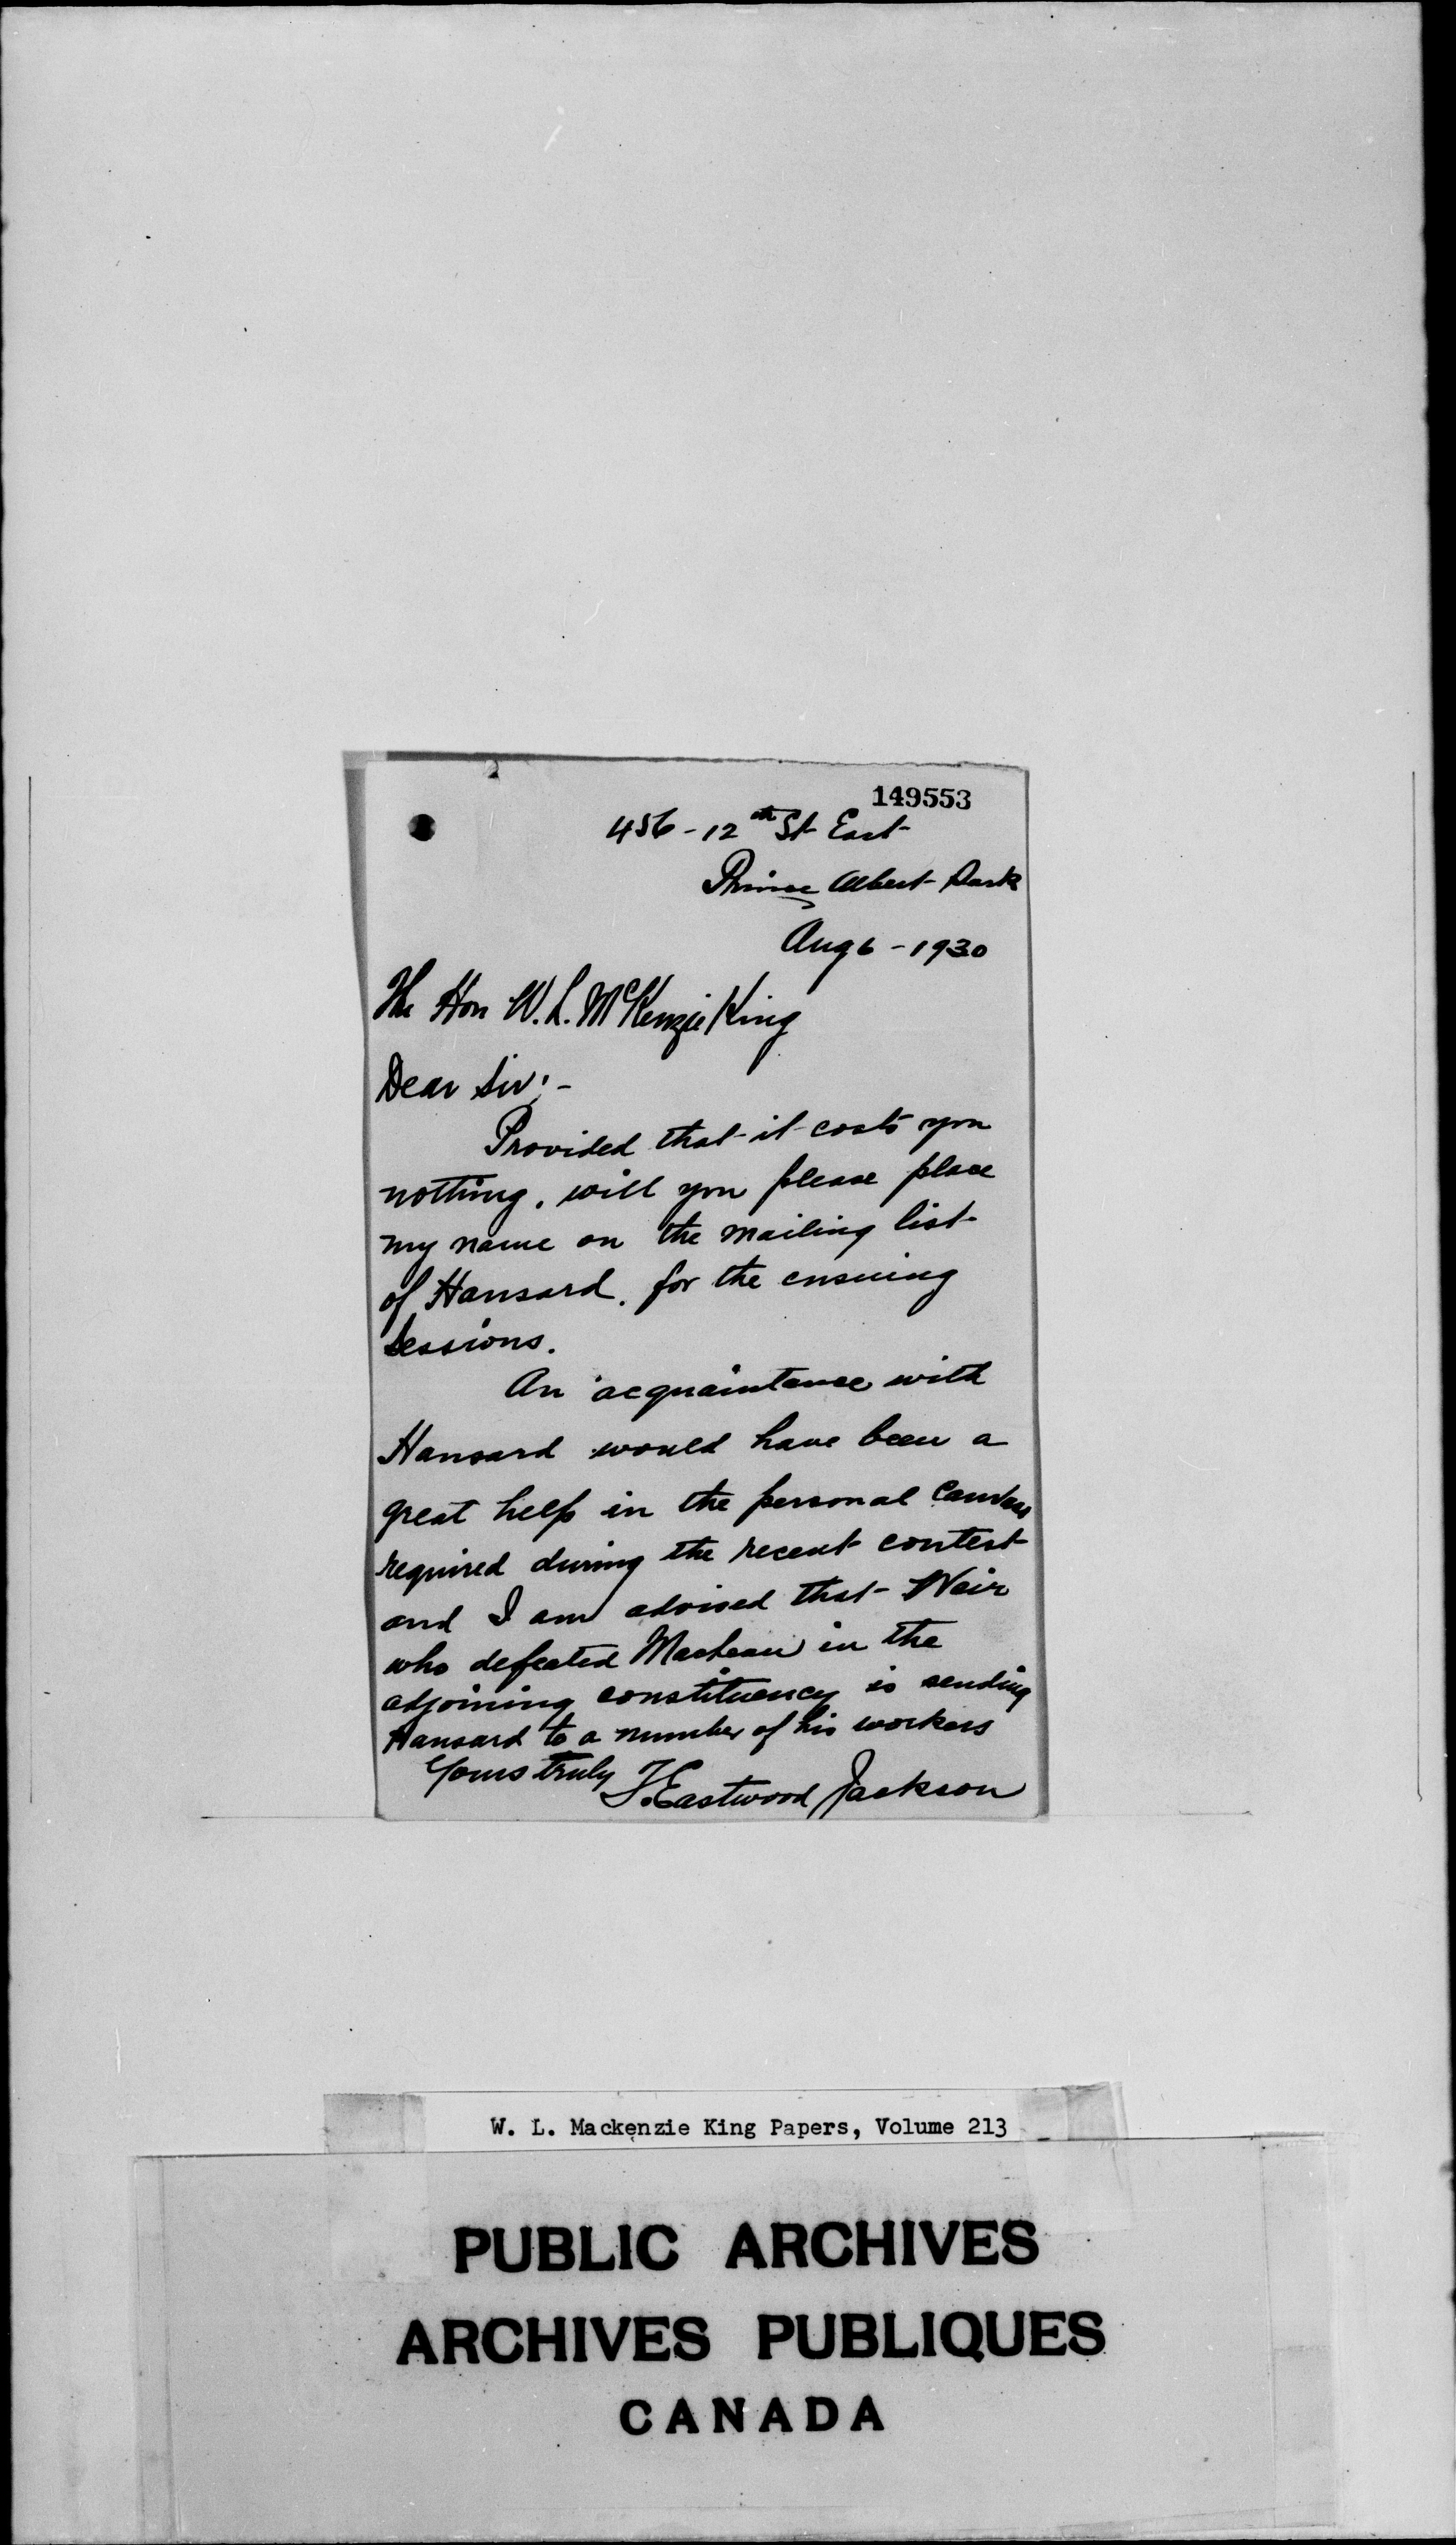 149553
456-12th St East
Prince Albert Sask
Aug 6 - 1930
The Hon W. L. McKenzie King
Dear Sir:-
Provided that it costs you
nothing, will you please place
my name on the mailing list
of Hansard, for the ensuing
sessions.
An acquaintance with
Hansard would have been a
great help in the personal canvass
required during the recent contest
and I am advised that Weir
who defeated Maclean in the
adjoining constituency is sending
Hansard to a number of his workers
Yours truly T. Eastwood Jackson
W. L. Mackenzie King Papers, Volume 213
PUBLIC ARCHIVES
ARCHIVES PUBLIQUES
CANADA